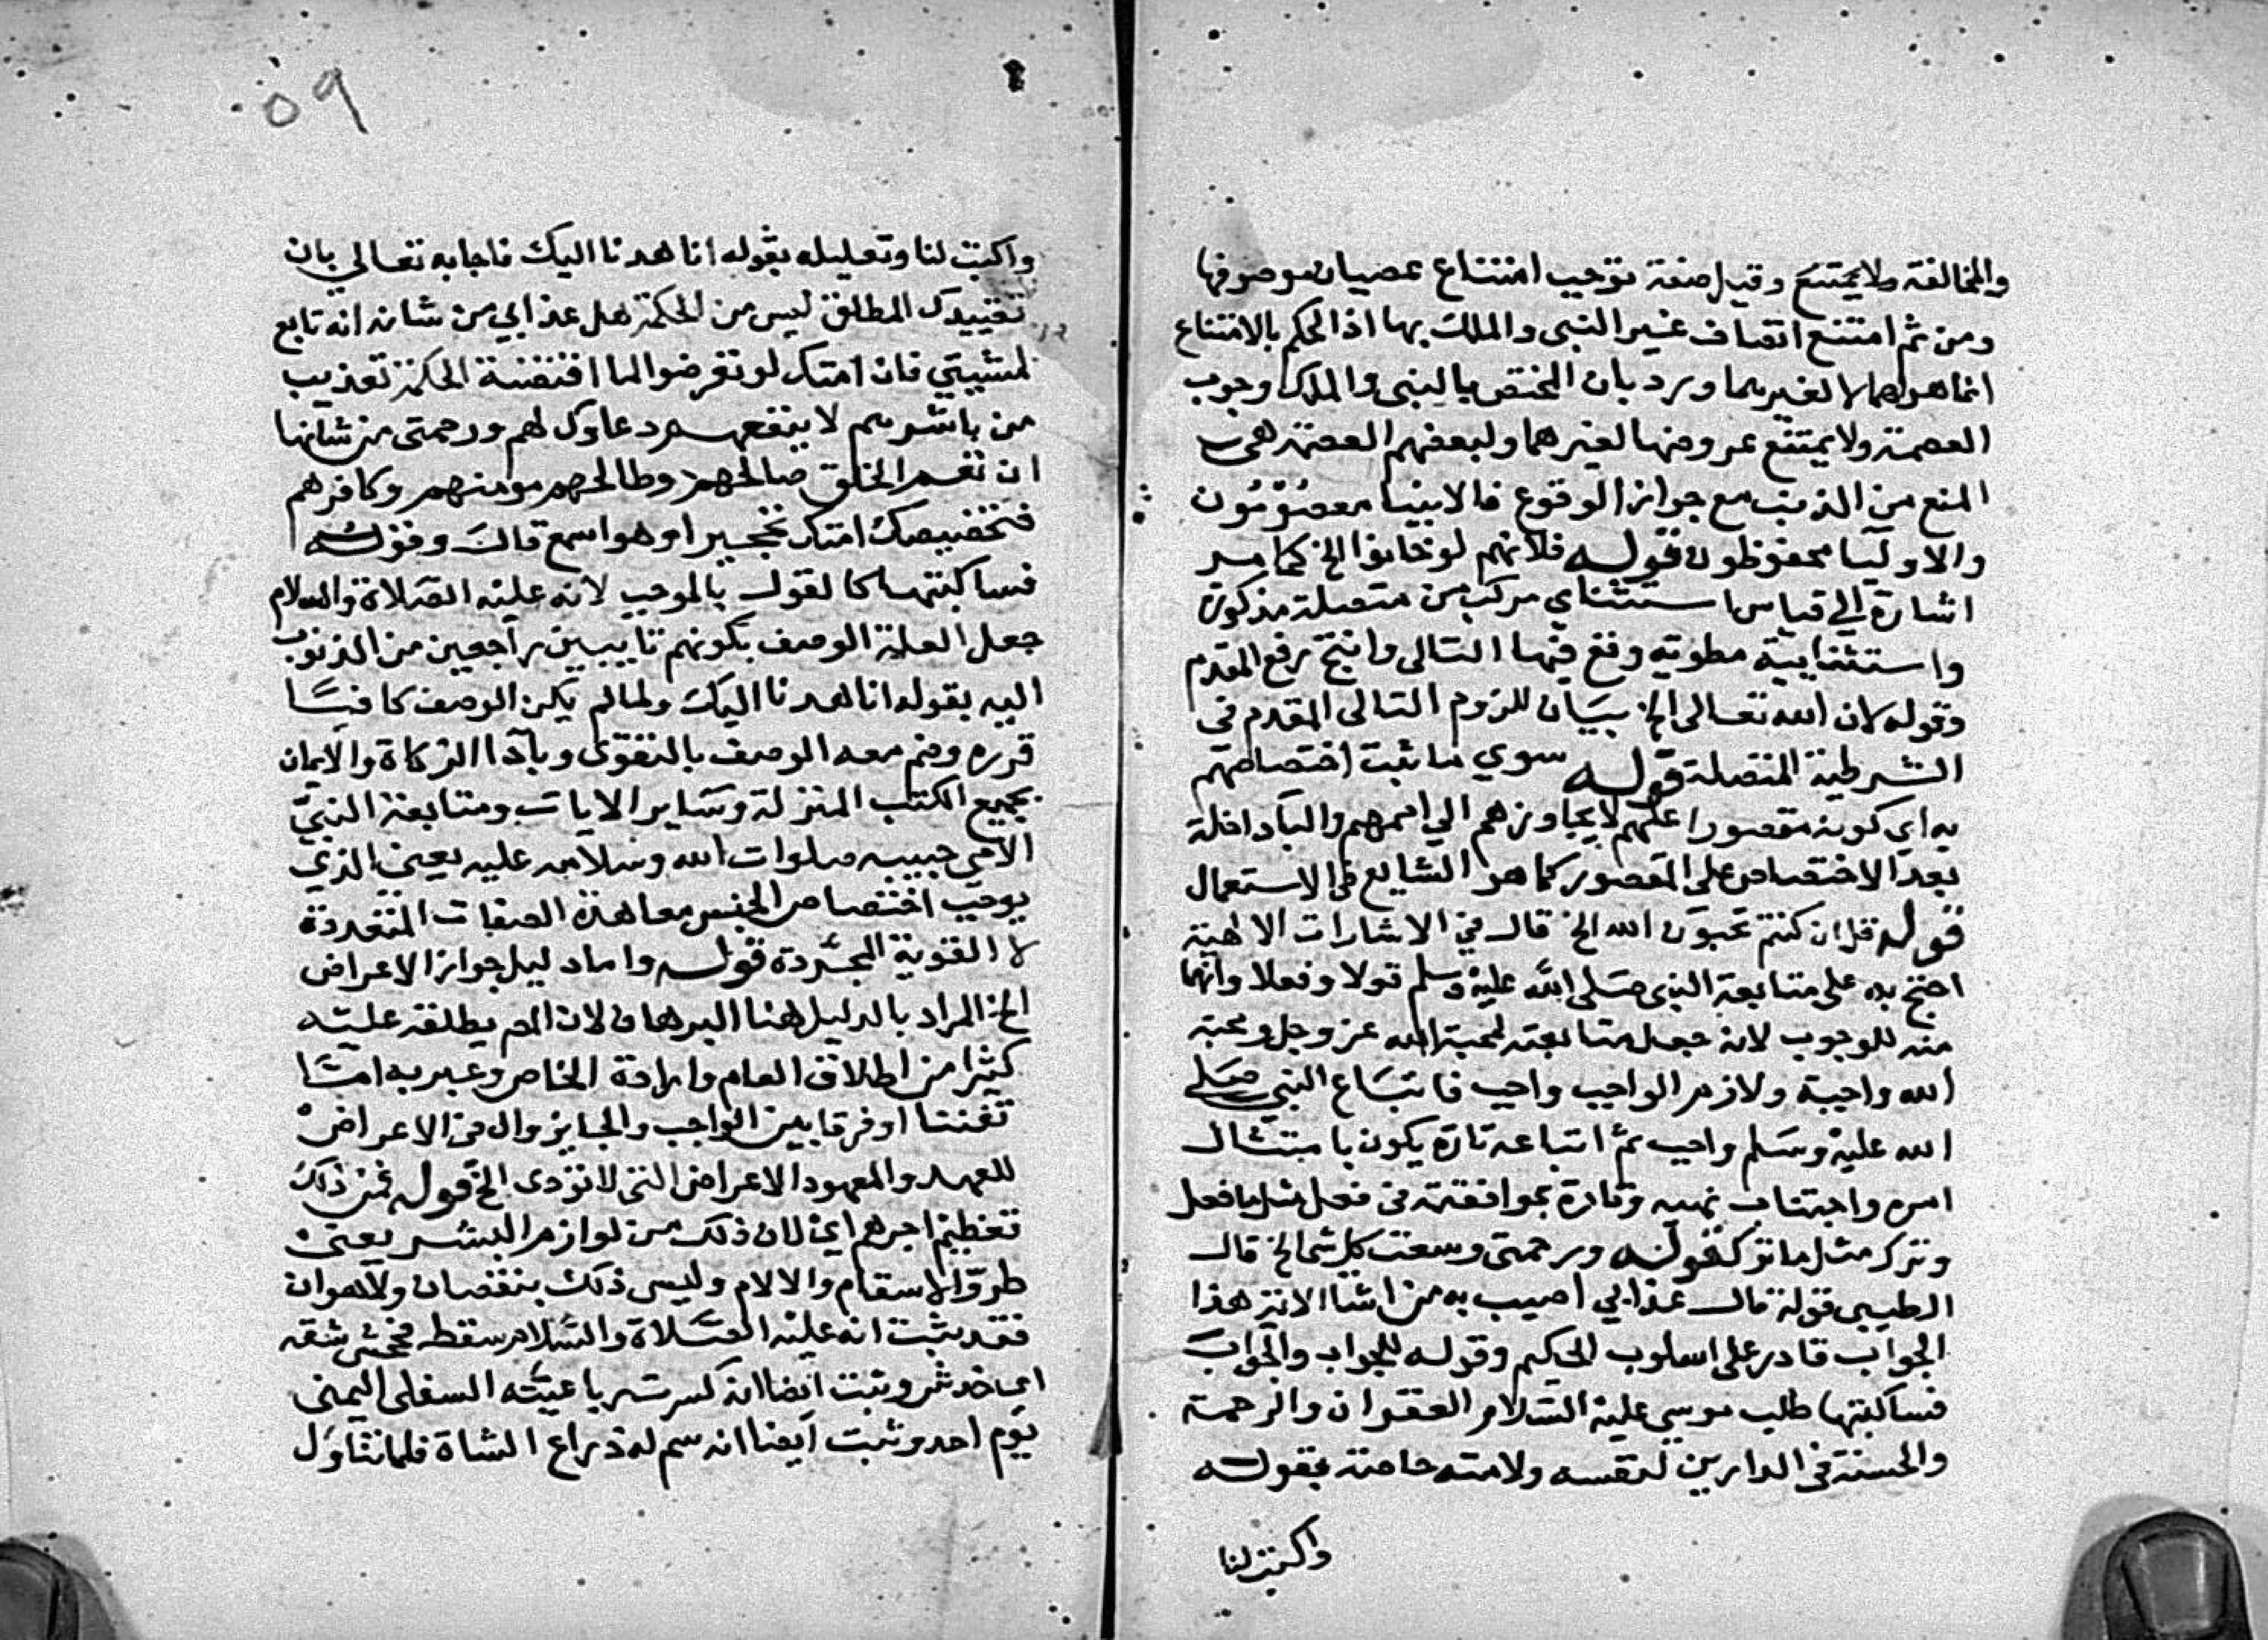 والمخالفة ولا يمتنع وقيل صفة توجب امتناع عصيان موصوفها
ومن ثم امتنع اتصاف غير النبي والملك بها اذ الحكم بالامتناع
انما هو لهما لا لغيرهما ورد بان المختص بالنبي والملك وجوب
العصمة ولا يمتنع عروضها لغيرهما ولبعضهم العصمة هي
المنع من الذنب مع جواز الوقوع فالانبيا معصومون
والاوليا محفوظون قوله فلانهم لو خانوا الخ كما مر
اشارة الي قياس استثناي مركب من متصلة مذكورة
واستثنايية مطوية وفع فيها التالى وانتج رفع المقدم
وقوله لان الله تعالى الخ بيان للزوم التالى المقدم في
الشرطية المتصلة قوله سوي ما ثبت اختصاصهم
به اي كونه مقصورا عليهم لا يجاوزهم الي اممهم والبا داخلة
بعد الاختصاص على المقصور كما هو الشايع في الاستعمال
قوله قل ان كنتم تحبون الله الخ قال في الاشارات الالهية
احتج به على متابعة النبي صلى الله عليه وسلم قولا وفعلا وانها
منه للوجوب لانه جعل متابعته لمحبة الله عز وجل ومحبة
الله واجبة ولازم الواجب واجب فاتباع النبي صلى
الله عليه وسلم واجب ثم اتباعه تارة يكون بامتثال
امره واجتناب نهيه وتارة بموافقته في فعل مثل ما فعل
وترك مثل ما ترك قوله ورحمتي وسعت كل شي الخ قال
الطيبى قوله قال عذابي اصيب به من اشا الاية هذا
الجواب قادر على اسلوب الحكيم وقوله للجواب والجواب
فساكتبها طلب موسى عليه السلام الغفران والرحمة
والحسنة في الدارين لنفسه ولامته خاصة بقوله
واكتب لنا
٥٩
واكتب لنا وتعليله بقوله انا هدنا اليك فاجابه تعالي بان
تقييدك المطلق ليس من الحكمة هل عذابي من شانه انه تابع
لمشيتي فان امتك لو تعرضوا لما اقتضته الحكمة تعذيب
من باشرهم لا ينفعهم دعاوك لهم ورحمتى من شانها
ان تعم الخلق صالحهم وطالحهم مومنهم وكافرهم
فتخصيصك امتك تحجير او هو اسمع قال وقوله
فساكتبها كالقول بالموجب لانه عليه الصلاة والسلام
جعل العلة الوصف بكونهم تايبين راجعين من الذنوب
اليه بقوله انا هدنا اليك ولما لم يكن الوصف كافيا
قرره وضم معه الوصف بالتقوى وبادا الزكاة والايمان
بجميع الكتب المنزلة وساير الايات ومتابعة النبي
الامي حبيبه صلوات الله وسلامه عليه يعني الذي
يوجب اختصاص الجنس معا هذه الصفات المتعددة
لا القوية المجردة قوله واما دليل جواز الاعراض
الخ المراد بالدليل هنا البرهان لان المص يطلقه عليه
كثيرا من اطلاق العام وارادة الخاص وعبر به امتا
تفننا او فرقا بين الواجب والجايز وال في الاعراض
للعهد والمعهود الاعراض التي لا تودى الخ قوله فمن ذلك
تعظيم اجرهم اي لان ذلك من لوازم البشر يعني
طرو الاسقام والالام وليس ذلك بنقصان ولا هوان
فقد ثبت انه عليه الصلاة والسلام سقط فجحش شقه
اي خدش وثبت ايضا انه كسرت رباعيته السفلى اليمنى
يوم احد وثبت ايضا انه سم له ذراع الشاة فلما تناول